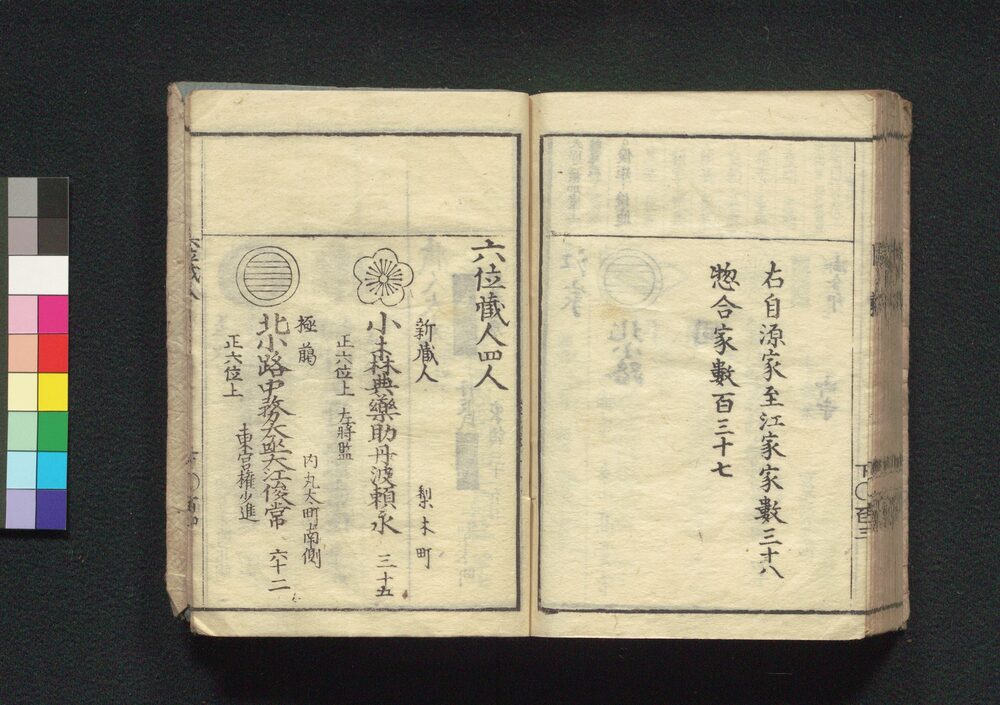 右自源家至江家家數三十八
惣合家數百三十七
下〇百三
六位蔵人四人
新蔵人
梨木町
小森典藥助丹波頼永
三十五
正六位上
左将監
極﨟
内丸太町南側
北小路中務大丞大江俊常
六十二
正六位上
東宮権少進
六位蔵人